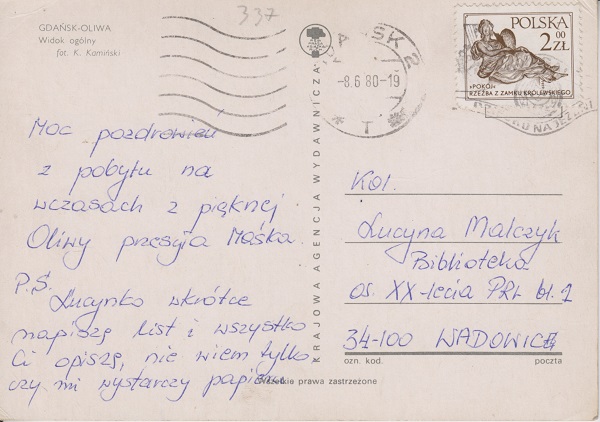 337
GDAŃSK-OLIWA
Widok ogólny
fot. K. Kamiński
GDAŃSK 2
-8.6 80-19
T
POLSKA
2 00 ZŁ
„POKÓJ”
RZEŹBA Z ZAMKU KRÓLEWSKIEGO
Moc pozdrowień
z pobytu na
wczasach z pięknej
Oliwy przesyła Maśka.
P.S.
Lucynko wkrótce
napiszę list i wszystko
Ci opiszę, nie wiem tylko
czy mi wystarczy papieru
KRAJOWA AGENCJA WYDAWNICZA
Kol.
Lucyna Malczyk
Biblioteka
os. XX-lecia PRL bl. 1
34-100 WADOWICE
ozn. kod. poczta
Wszelkie prawa zastrzeżone